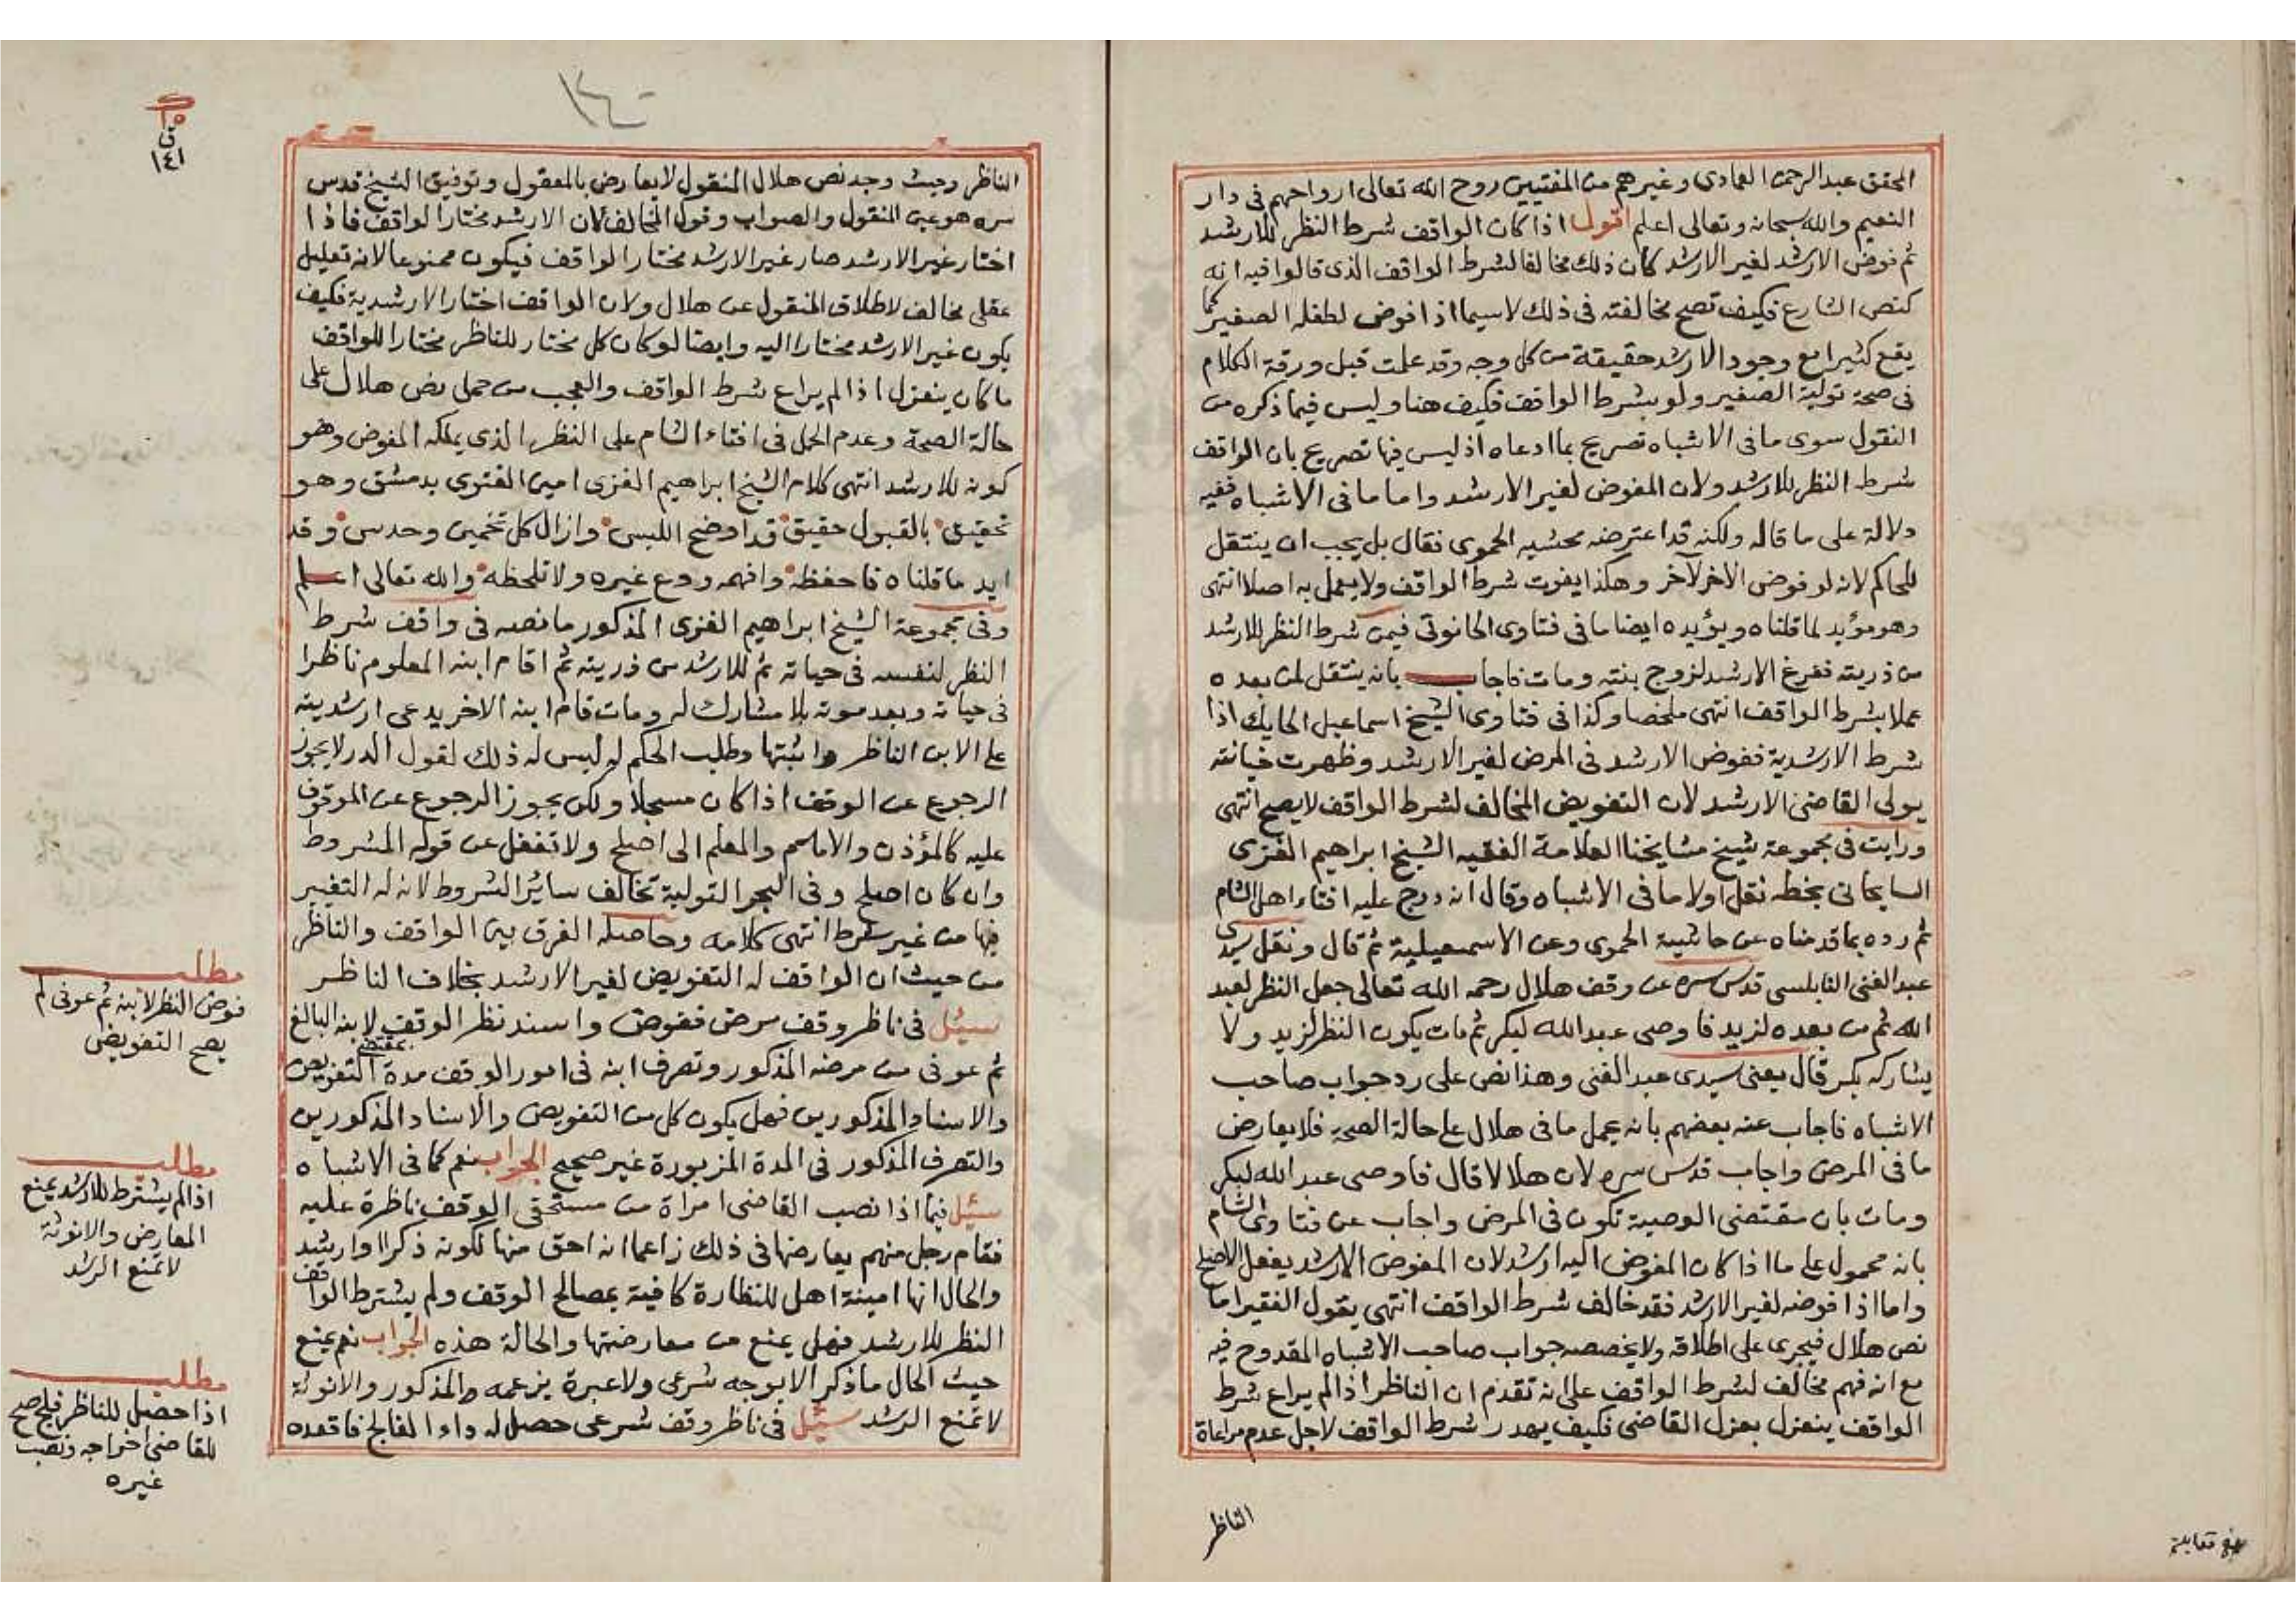 المحقق عبد الرحمن العمادي وغيرهم من المفتيين روح الله تعالى ارواحهم في دار
النعيم والله سبحانه وتعالى اعلم اقول اذا كان الواقف شرط النظر للارشد
ثم فوض الارشد لغير الارشد كان ذلك مخالفا لشرط الواقف الذي قالوا فيه انه
كنص الشارع فكيف تصح مخالفته في ذلك لاسيما اذا فوض لطفله الصغير كما
يقع كثيرا مع وجود الارشد حقيقة من كل وجه وقد علمت قبل ورقة الكلام
في صحة تولية الصغير ولو بشرط الواقف فكيف هنا وليس فيما ذكره من
النقول سوى ما في الاشباه تصريح بما ادعاه اذ ليس فيها تصريح بان الواقف
شرط النظر للارشد ولان المفوض لغير الارشد واما ما في الاشباه ففيه
دلالة على ما قاله ولكنه قد اعترضه محشيه الحموي فقال بل يجب ان ينتقل
للحاكم لانه لو فوض الاخر لآخر وهكذا يفوت شرط الواقف ولا يعمل به اصلا انتهى
وهو مؤيد لما قلناه ويؤيده ايضا ما في فتاوى الحانوتي فيمن شرط النظر للارشد
من ذريته ففرغ الارشد لزوج بنته ومات فاجاب بانه ينتقل لمن بعده
عملا بشرط الواقف انتهى ملخصا وكذا في فتاوى الشيخ اسماعيل الحايك اذا
شرط الارشدية ففوض الارشد في المرض لغير الارشد وظهرت خيانته
يولي القاضي الارشد لان التفويض المخالف لشرط الواقف لا يصح انتهى
ورايت في مجموعة شيخ مشايخنا العلامة الفقيه الشيخ ابراهيم الغزي
السايحاني بخطه نقل اولا ما في الاشباه وقال انه درج عليه افتاء اهل الشام
ثم رده بما قدمناه عن حاشية الحموي وعن الاسمعيلية ثم قال ونقل سيدي
عبد الغني النابلسي قدس سره عن وقف هلال رحمه الله تعالى جعل النظر لعبد
الله ثم من بعده لزيد فاوصى عبد الله لبكر ثم مات يكون النظر لزيد ولا
يشاركه بكر قال يعني سيدي عبد الغني وهذا نص على رد جواب صاحب
الاشباه فاجاب عنه بعضهم بانه يحمل ما في هلال على حالة الصحة فلا يعارض
ما في المرض واجاب قدس سره لان هلالا قال فاوصى عبد الله لبكر
ومات بان مقتضى الوصية تكون في المرض واجاب عن فتاوى الشام
بانه محمول على ما اذا كان المفوض اليه ارشد لان المفوض الارشد يفعل الاصلح
واما اذا فوضه لغير الارشد فقد خالف شرط الواقف انتهى يقول الفقير اما
نص هلال فيجرى على اطلاقه ولا يخصصه جواب صاحب الاشباه المقدوح فيه
مع انه فهم مخالف لشرط الواقف على انه تقدم ان الناظر اذا لم يراع شرط
الواقف ينعزل بعزل القاضي فكيف يهدر شرط الواقف لاجل عدم مراعاة
الناظر
بلغ مقابلة
١٤٠
١٥
ق
١٤١
الناظر وحيث وجد نص هلال المنقول لا يعارض بالمعقول وتوفيق الشيخ قدس
سره هو عين المنقول والصواب وقول المخالف لان الارشد مختار الواقف فاذا
اختار غير الارشد صار غير الارشد مختار الواقف فيكون ممنوعا لانه تعليل
عقلي مخالف لاطلاق المنقول عن هلال ولان الواقف اختار الارشدية فكيف
يكون غير الارشد مختارا اليه وايضا لو كان كل مختار للناظر مختارا للواقف
ما كان ينعزل اذا لم يراع شرط الواقف والعجب من حمل نص هلال على
حالة الصحة وعدم الحمل في افتاء الشام على النظر الذي يملكه المفوض وهو
كونه للارشد انتهى كلام الشيخ ابراهيم الغزي امين الفتوى بدمشق وهو
تحقيق بالقبول حقيق قد اوضح اللبس وازال كل تخمين وحدس وقد
ايد ما قلناه فاحفظه وافهمه ودع غيره ولا تلحظه والله تعالى اعلم
وفي مجموعة الشيخ ابراهيم الغزي المذكور ما نصه في واقف شرط
النظر لنفسه في حياته ثم للارشد من ذريته ثم اقام ابنه المعلوم ناظرا
في حياته وبعد موته بلا مشارك له ومات قام ابنه الاخر يدعي ارشديته
على الابن الناظر واثبتها وطلب الحكم له ليس له ذلك لقول الدرر لا يجوز
الرجوع عن الوقف اذا كان مسجلا ولكن يجوز الرجوع عن الموقوف
عليه كالمؤذن والامام والمعلم الى اصلح ولا تغفل عن قوله المشروط
وان كان اصلح وفي البحر التولية تخالف سائر الشروط لانه له التغيير
فيها من غير شرط انتهى كلامه وحاصله الفرق بين الواقف والناظر
من حيث ان الواقف له التفويض لغير الارشد بخلاف الناظر
سئل في ناظر وقف مرض ففوض واسند نظر الوقف لابنه البالغ
ثم عوفي من مرضه المذكور وتصرف ابنه في امور الوقف مدة بمقتضى التفويض
والاسناد المذكورين فهل يكون كل من التفويض والاسناد المذكورين
والتصرف المذكور في المدة المزبورة غير صحيح الجواب نعم كما في الاشباه
سئل فيما اذا نصب القاضي امراة من مستحقي الوقف ناظرة عليه
فقام رجل منهم يعارضها في ذلك زاعما انه احق منها لكونه ذكرا وارشد
والحال انها امينة اهل للنظارة كافية بمصالح الوقف ولم يشترط الواقف
النظر للارشد فهل يمنع من معارضتها والحالة هذه الجواب نعم يمنع
حيث الحال ما ذكر الا بوجه شرعي ولا عبرة بزعمه المذكور والانوثة
لا تمنع الرشد سئل في ناظر وقف شرعي حصل له داء الفالج فاقعده
مطلب
فوض النظر لابنه ثم عوفي لم
يصح التفويض
مطلب
اذا لم يشترط للارشد يمنع
المعارض والانوثة
لا تمنع الرشد
مطلب
اذا حصل للناظر فلج صح
للقاضي اخراجه ونصب
غيره